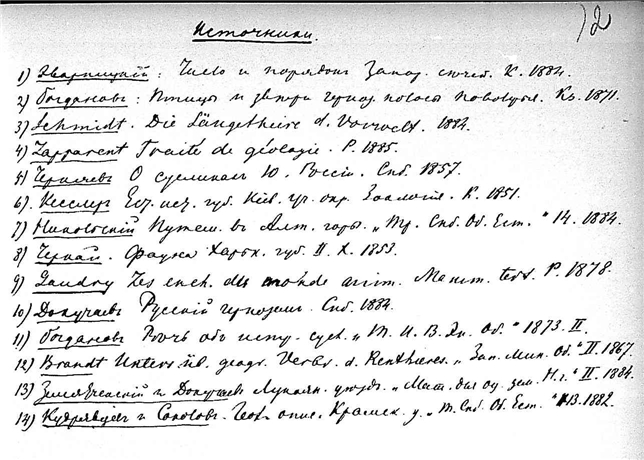 2
Источники.
1) Эварницкій: Число и порядокъ Запор. сѣчей. К. 1884.
2) Богдановъ: Птицы и звѣри черноз. полосы поволжья. Кз. 1871.
3) Schmidt. Die Säugethiere d. Vorwelt. 1884.
4) Lapparent Traité de géologie. P. 1885.
5) Черняевъ О сусликахъ Ю. Россіи. Спб. 1857.
6) Кесслеръ Ест. ист. губ. Кіев. уч. окр. Зоологія. К. 1851.
7) Никольскій Путеш. въ Алт. горы. „Тр. Спб. Об. Ест.“ 14. 1884.
8) Чернай. Фауна Харьк. губ. II. Х. 1853.
9) Gaudry Les ench. du monde anim. Mamm. tert. P. 1878.
10) Докучаевъ Русскій черноземъ. Спб. 1884.
11) Богдановъ Рѣчь объ „ 1873. II.
12) Brandt Unters. üb. geogr. Verbr. d. Rennthieres. „Зап. Мин. Об.“ II. 1867.
13) Земятченскій и Докучаевъ Лукоян. уѣздъ. „Мат. для оц. зем. Н. г.“ II. 1884.
14) Кудрявцевъ и Соколовъ. Геол. опис. Кромск. у. „Т. Спб. Об. Ест.“ 13. 1882.